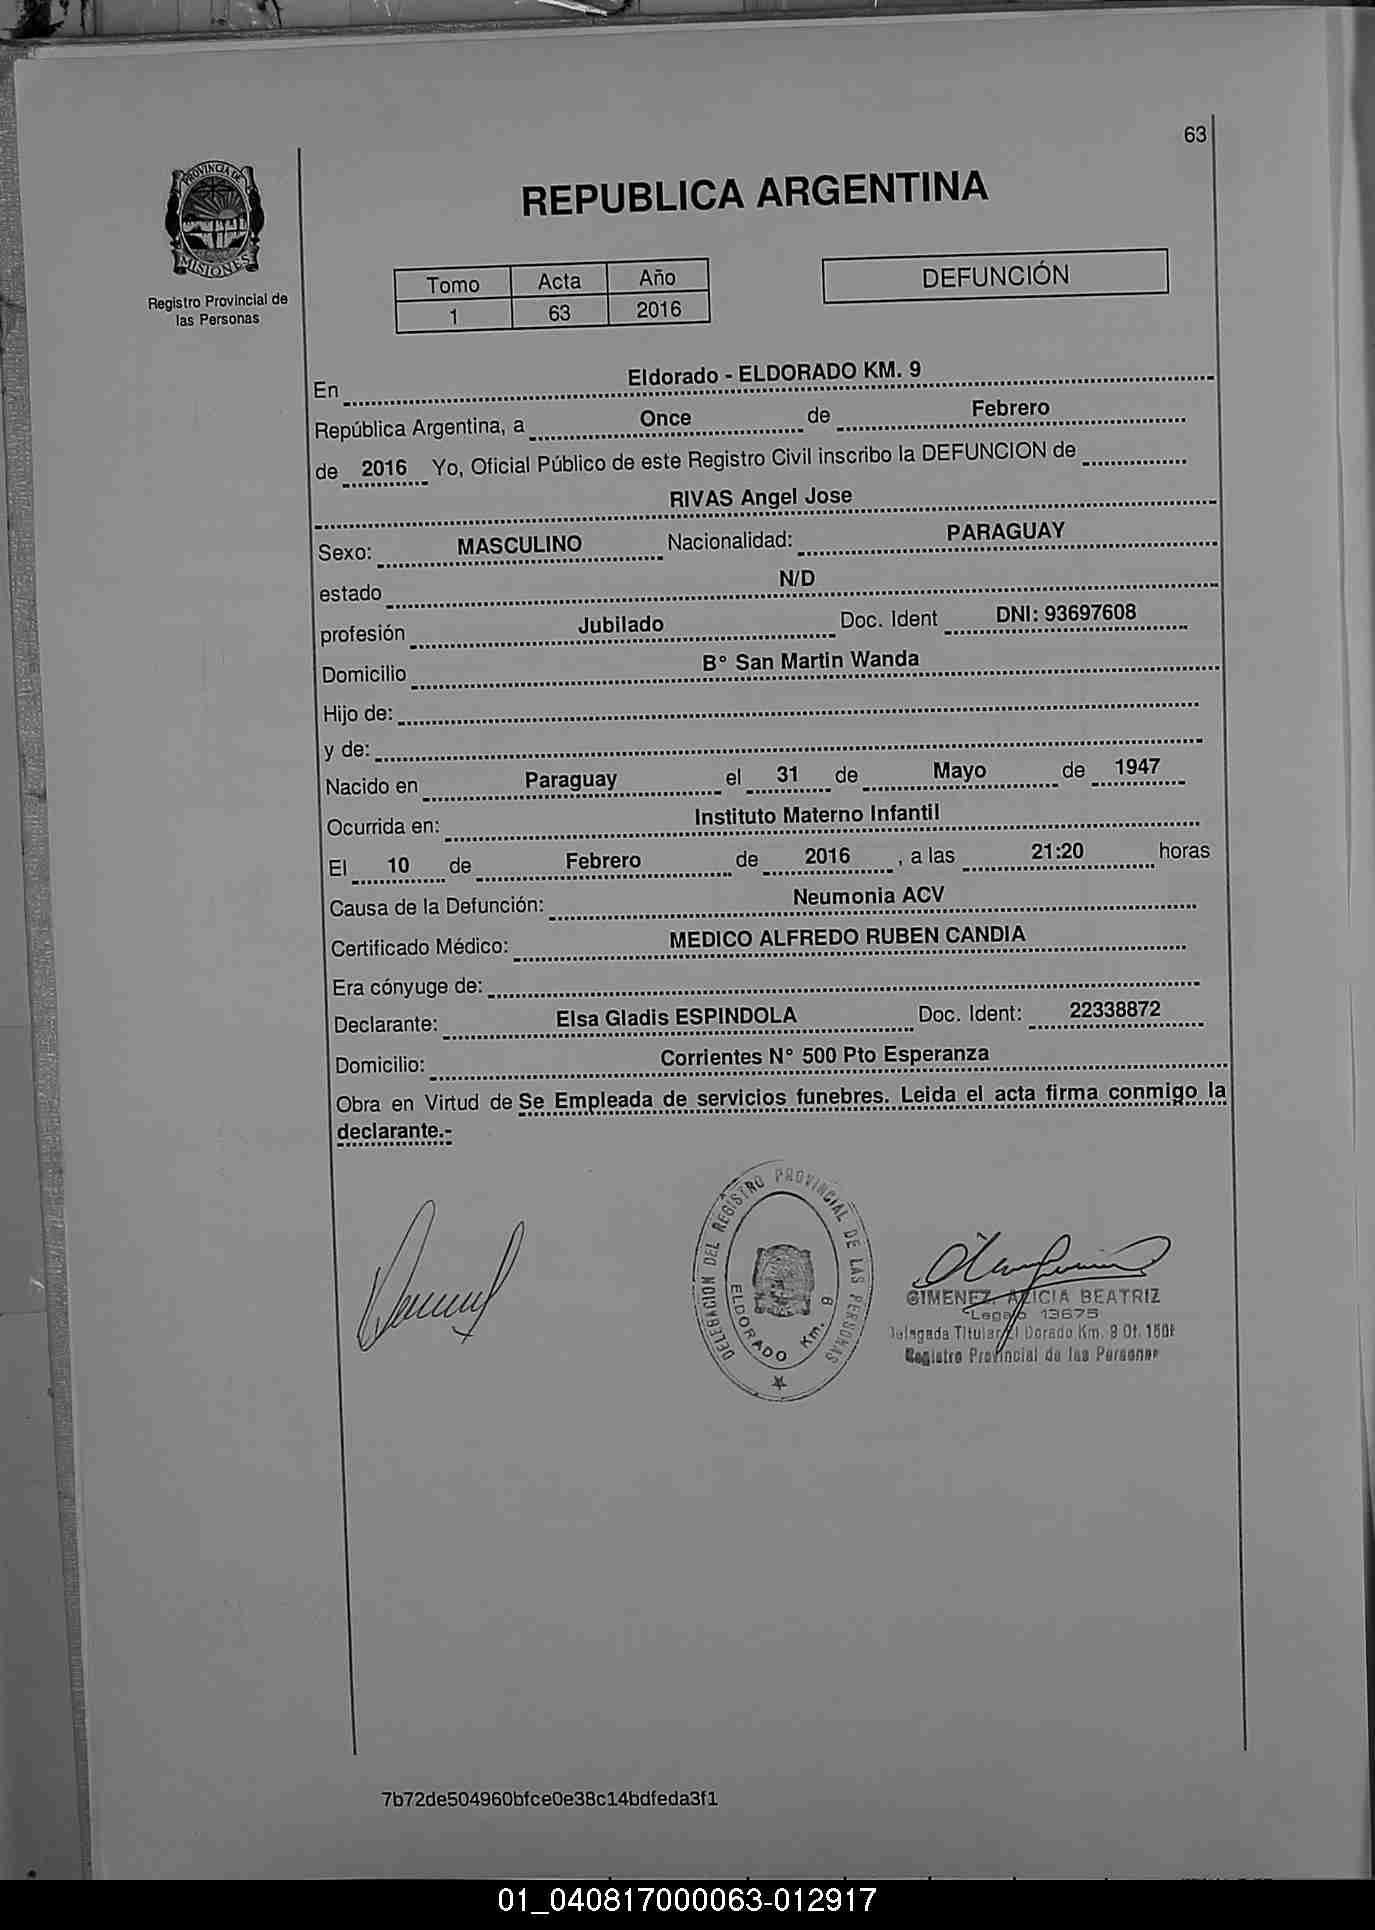 63
PROVINCIA DE
MISIONES
Registro Provincial de
las Personas
REPUBLICA ARGENTINA
Tomo Acta Año
1 63 2016
DEFUNCIÓN
En Eldorado - ELDORADO KM. 9
República Argentina, a Once de Febrero
de 2016 Yo, Oficial Público de este Registro Civil inscribo la DEFUNCION de
RIVAS Angel Jose
Sexo: MASCULINO Nacionalidad: PARAGUAY
estado N/D
profesión Jubilado Doc. Ident DNI: 93697608
Domicilio B° San Martin Wanda
Hijo de:
y de:
Nacido en Paraguay el 31 de Mayo de 1947
Ocurrida en: Instituto Materno Infantil
El 10 de Febrero de 2016 , a las 21:20 horas
Causa de la Defunción: Neumonia ACV
Certificado Médico: MEDICO ALFREDO RUBEN CANDIA
Era cónyuge de:
Declarante: Elsa Gladis ESPINDOLA Doc. Ident: 22338872
Domicilio: Corrientes N° 500 Pto Esperanza
Obra en Virtud de Se Empleada de servicios funebres. Leida el acta firma conmigo la
declarante.-
DELEGACION DEL REGISTRO PROVINCIAL DE LAS PERSONAS
ELDORADO Km.
GIMENEZ, ALICIA BEATRIZ
Legajo 13675
Delegada Titular El Dorado Km. 9 Of.
Registro Provincial de las Personas
7b72de504960bfce0e38c14bdfeda3f1
01_040817000063-012917